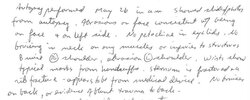 Autopsy performed May 26 in a.m. showed electrolytes
from autopsy. Abrasions on face consistent of being
on face + on left side. No petechia in eyelids. No
bruising in neck on any muscles or injuries to structures
Bruise Ⓡ shoulder, abrasion Ⓛ shoulder. Wrists show
typical marks from handcuffs. Sternum is fractured as
rib fracture - appears ok from medical device. No bruises
on back, or evidence of blunt trauma to back.